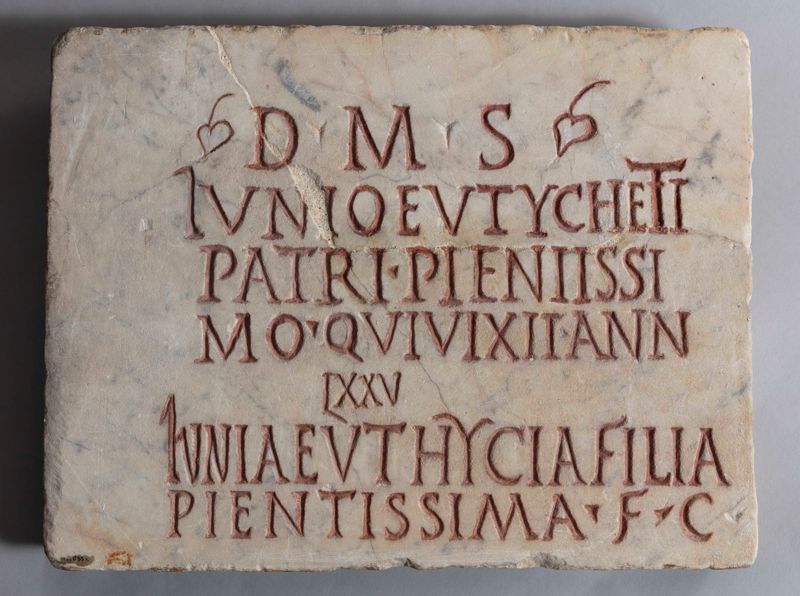 D · M · S
IVNIOEVTYCHETI
PATRI·PIENTISSI
MO·QVIVIXITANN
LXXV
IVNIAEVTHYCIAFILIA
PIENTISSIMA·F·C